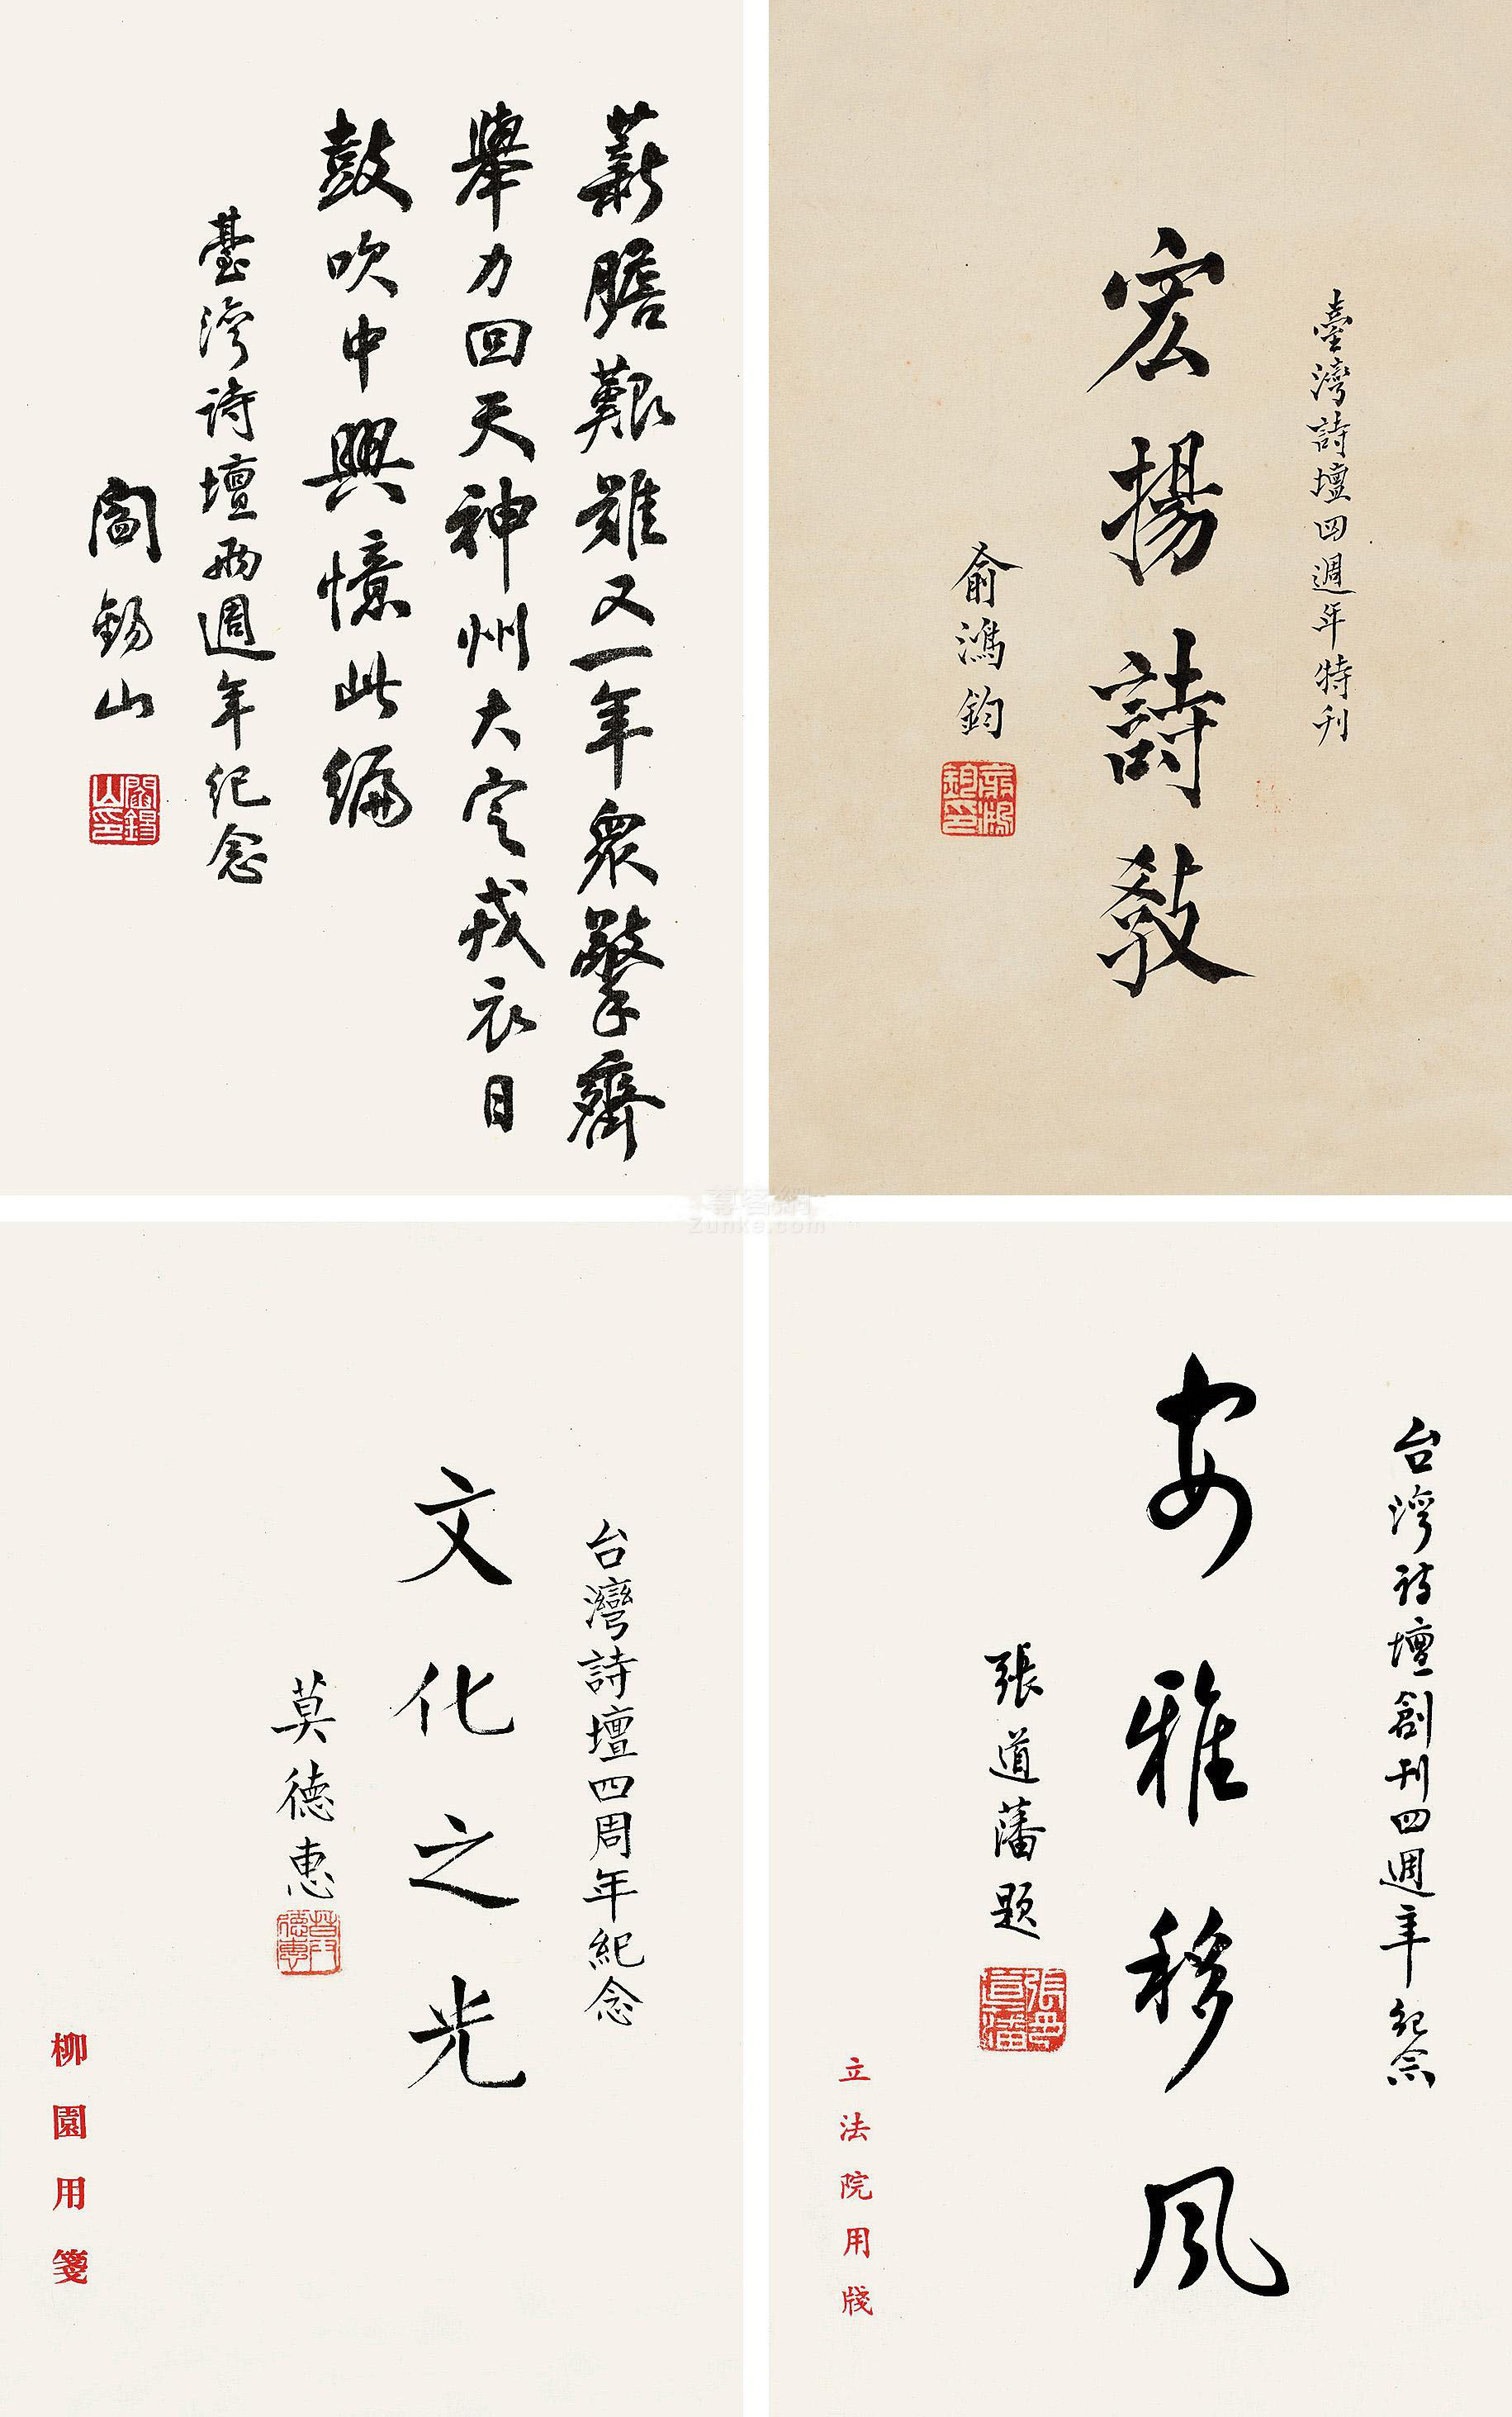 臺灣詩壇四週年特刊
宏揚詩教
俞鴻鈞
俞鴻鈞印
薪膽艱難又一年眾擎齊
舉力回天神州大定戎衣日
鼓吹中興憶此編
臺灣詩壇兩週年紀念
閻錫山
閻錫山印
尊客網
Zunke.com
台灣詩壇創刊四週年紀念
安雅移風
張道藩題
張道藩印
立法院用牋
台灣詩壇四周年紀念
文化之光
莫德惠
柳園用箋